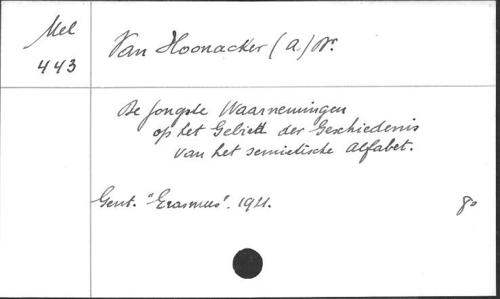 Mel
443
Van Hoonacker (A.) Dr.
De jongste Waarnemingen
op het Gebiett der Geschiedenis
van het semietische Alfabet.
Gent. "Erasmus". 1921.
8o